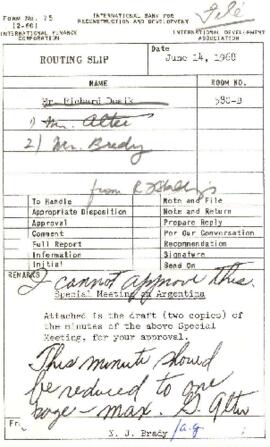 FORM No. 75
(2-66)
File
INTERNATIONAL BANK FOR
RECONSTRUCTION AND DEVELOPMENT
INTERNATIONAL FINANCE
CORPORATION
INTERNATIONAL DEVELOPMENT
ASSOCIATION
ROUTING SLIP
Date
June 14, 1968
NAME
ROOM NO.
Mr. Richard
1) Mr. Alter
2) Mr. Brady
from R
To Handle
Note and File
Appropriate Disposition
Note and Return
Approval
Prepare Reply
Comment
Per Our Conversation
Full Report
Recommendation
Information
Signature
Initial
Send On
REMARKS
I cannot approve this.
Special Meeting on Argentina
Attached is the draft (two copies) of
the minutes of the above Special
Meeting, for your approval.
This minute should
be reduced to one
page - max. G. Alter
From
N. J. Brady /a.g.